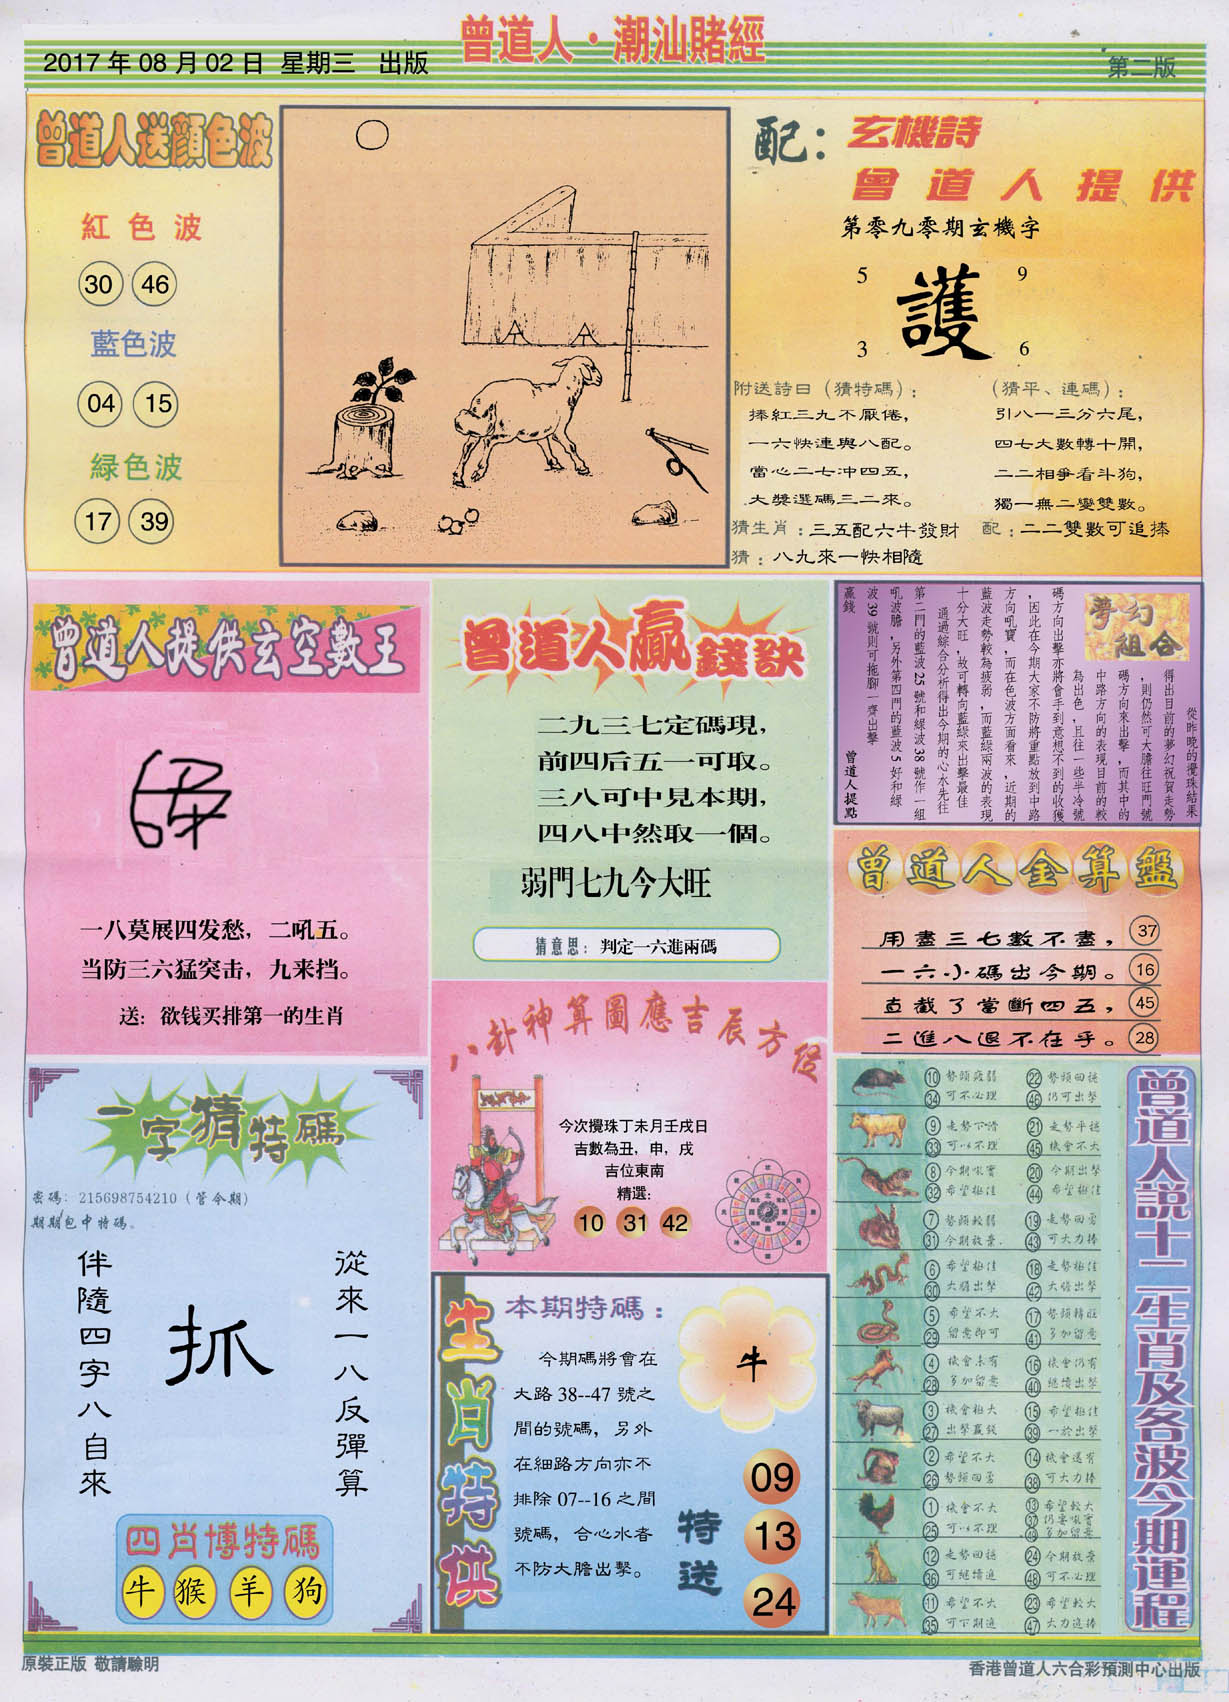 曾道人·潮汕賭經
2017年08月02日 星期三 出版
第二版
曾道人送顏色波
紅色波
30 46
藍色波
04 15
緑色波
17 39
配：玄機詩
曾道人提供
第零九零期玄機字
5 9
護
3 6
附送詩曰（猜特碼）：
捧紅三九不厭倦，
一六快連與八配。
當心二七冲四五，
大獎選碼三二來。
（猜平、連碼）：
引八一三分六尾，
四七大數轉十開，
二二相爭看斗狗，
獨一無二變雙數。
猜生肖：三五配六牛發財
配：二二雙數可追捧
猜：八九來一快相隨
曾道人提供玄空數王
一八莫展四发愁，二吼五。
当防三六猛突击，九来挡。
送：欲钱买排第一的生肖
曾道人贏錢訣
二九三七定碼現，
前四后五一可取。
三八可中見本期，
四八中然取一個。
弱門七九今大旺
猜意思：判定一六進兩碼
夢幻組合
從昨晚的攪珠結果
得出目前的夢幻祝賀走勢
，則仍然可大膽往旺門號
碼方向來出擊，而其中的
中路方向的表現目前的較
為出色，且往一些半冷號
碼方向出擊亦將會手到意想不到的收獲
，因此在今期大家不防將重點放到中路
方向吼寶，而在色波方面看來，近期的
藍波走勢較為疲弱，而藍綠兩波的表現
十分大旺，故可轉向藍綠來出擊最佳
通過綜合分析得出今期的心水先往
第二門的藍波25號和綠波38號作一組
吼波膽，另外第四門的藍波5好和綠
波39號則可拖腳一齊出擊
贏錢
曾道人提點
曾道人金算盤
用盡三七數不盡，37
一六小碼出今期。16
直截了當斷四五，45
二進八退不在乎。28
八卦神算圖應吉辰方位
今次攪珠丁未月壬戌日
吉數為丑，申，戌
吉位東南
精選：
10 31 42
一字猜特碼
密碼：215698754210（管令期）
期期包中特碼。
從來一八反彈算
抓
伴隨四字八自來
四肖博特碼
牛 猴 羊 狗
生肖特供
本期特碼：
今期碼將會在
大路38--47號之
間的號碼，另外
在細路方向亦不
排除07--16之間
號碼，合心水者
不防大膽出擊。
牛
特送
09
13
24
曾道人説十二生肖及各波今期運程
10 勢頭疲弱 22 勢頭回穩
34 可不必理 46 仍可出擊
9 走勢下滑 21 走勢平穩
33 可以不理 45 機會不大
8 今期吼寶 20 今期出擊
32 希望極佳 44 希望極佳
7 勢頭較弱 19 走勢回勇
31 今期放棄 43 可大力捧
6 希望極佳 18 走勢極佳
30 大膽出擊 42 大膽出擊
5 希望不大 17 勢頭轉旺
29 留意即可 41 多加留意
4 機會未有 16 機會仍有
28 多加留意 40 繼續出擊
3 機會極大 15 希望極佳
27 出擊贏錢 39 一於出擊
2 希望不大 14 機會還有
26 勢頭回勇 38 可大力捧
1 機會不大 13 希望較大
25 可以不理 37 仍要吼寶
49 多加留意
12 走勢回穩 24 今期放棄
36 可繼續追 48 可不必理
11 希望不大 23 希望較大
35 可下期追 47 大力追捧
原裝正版 敬請驗明
香港曾道人六合彩預測中心出版